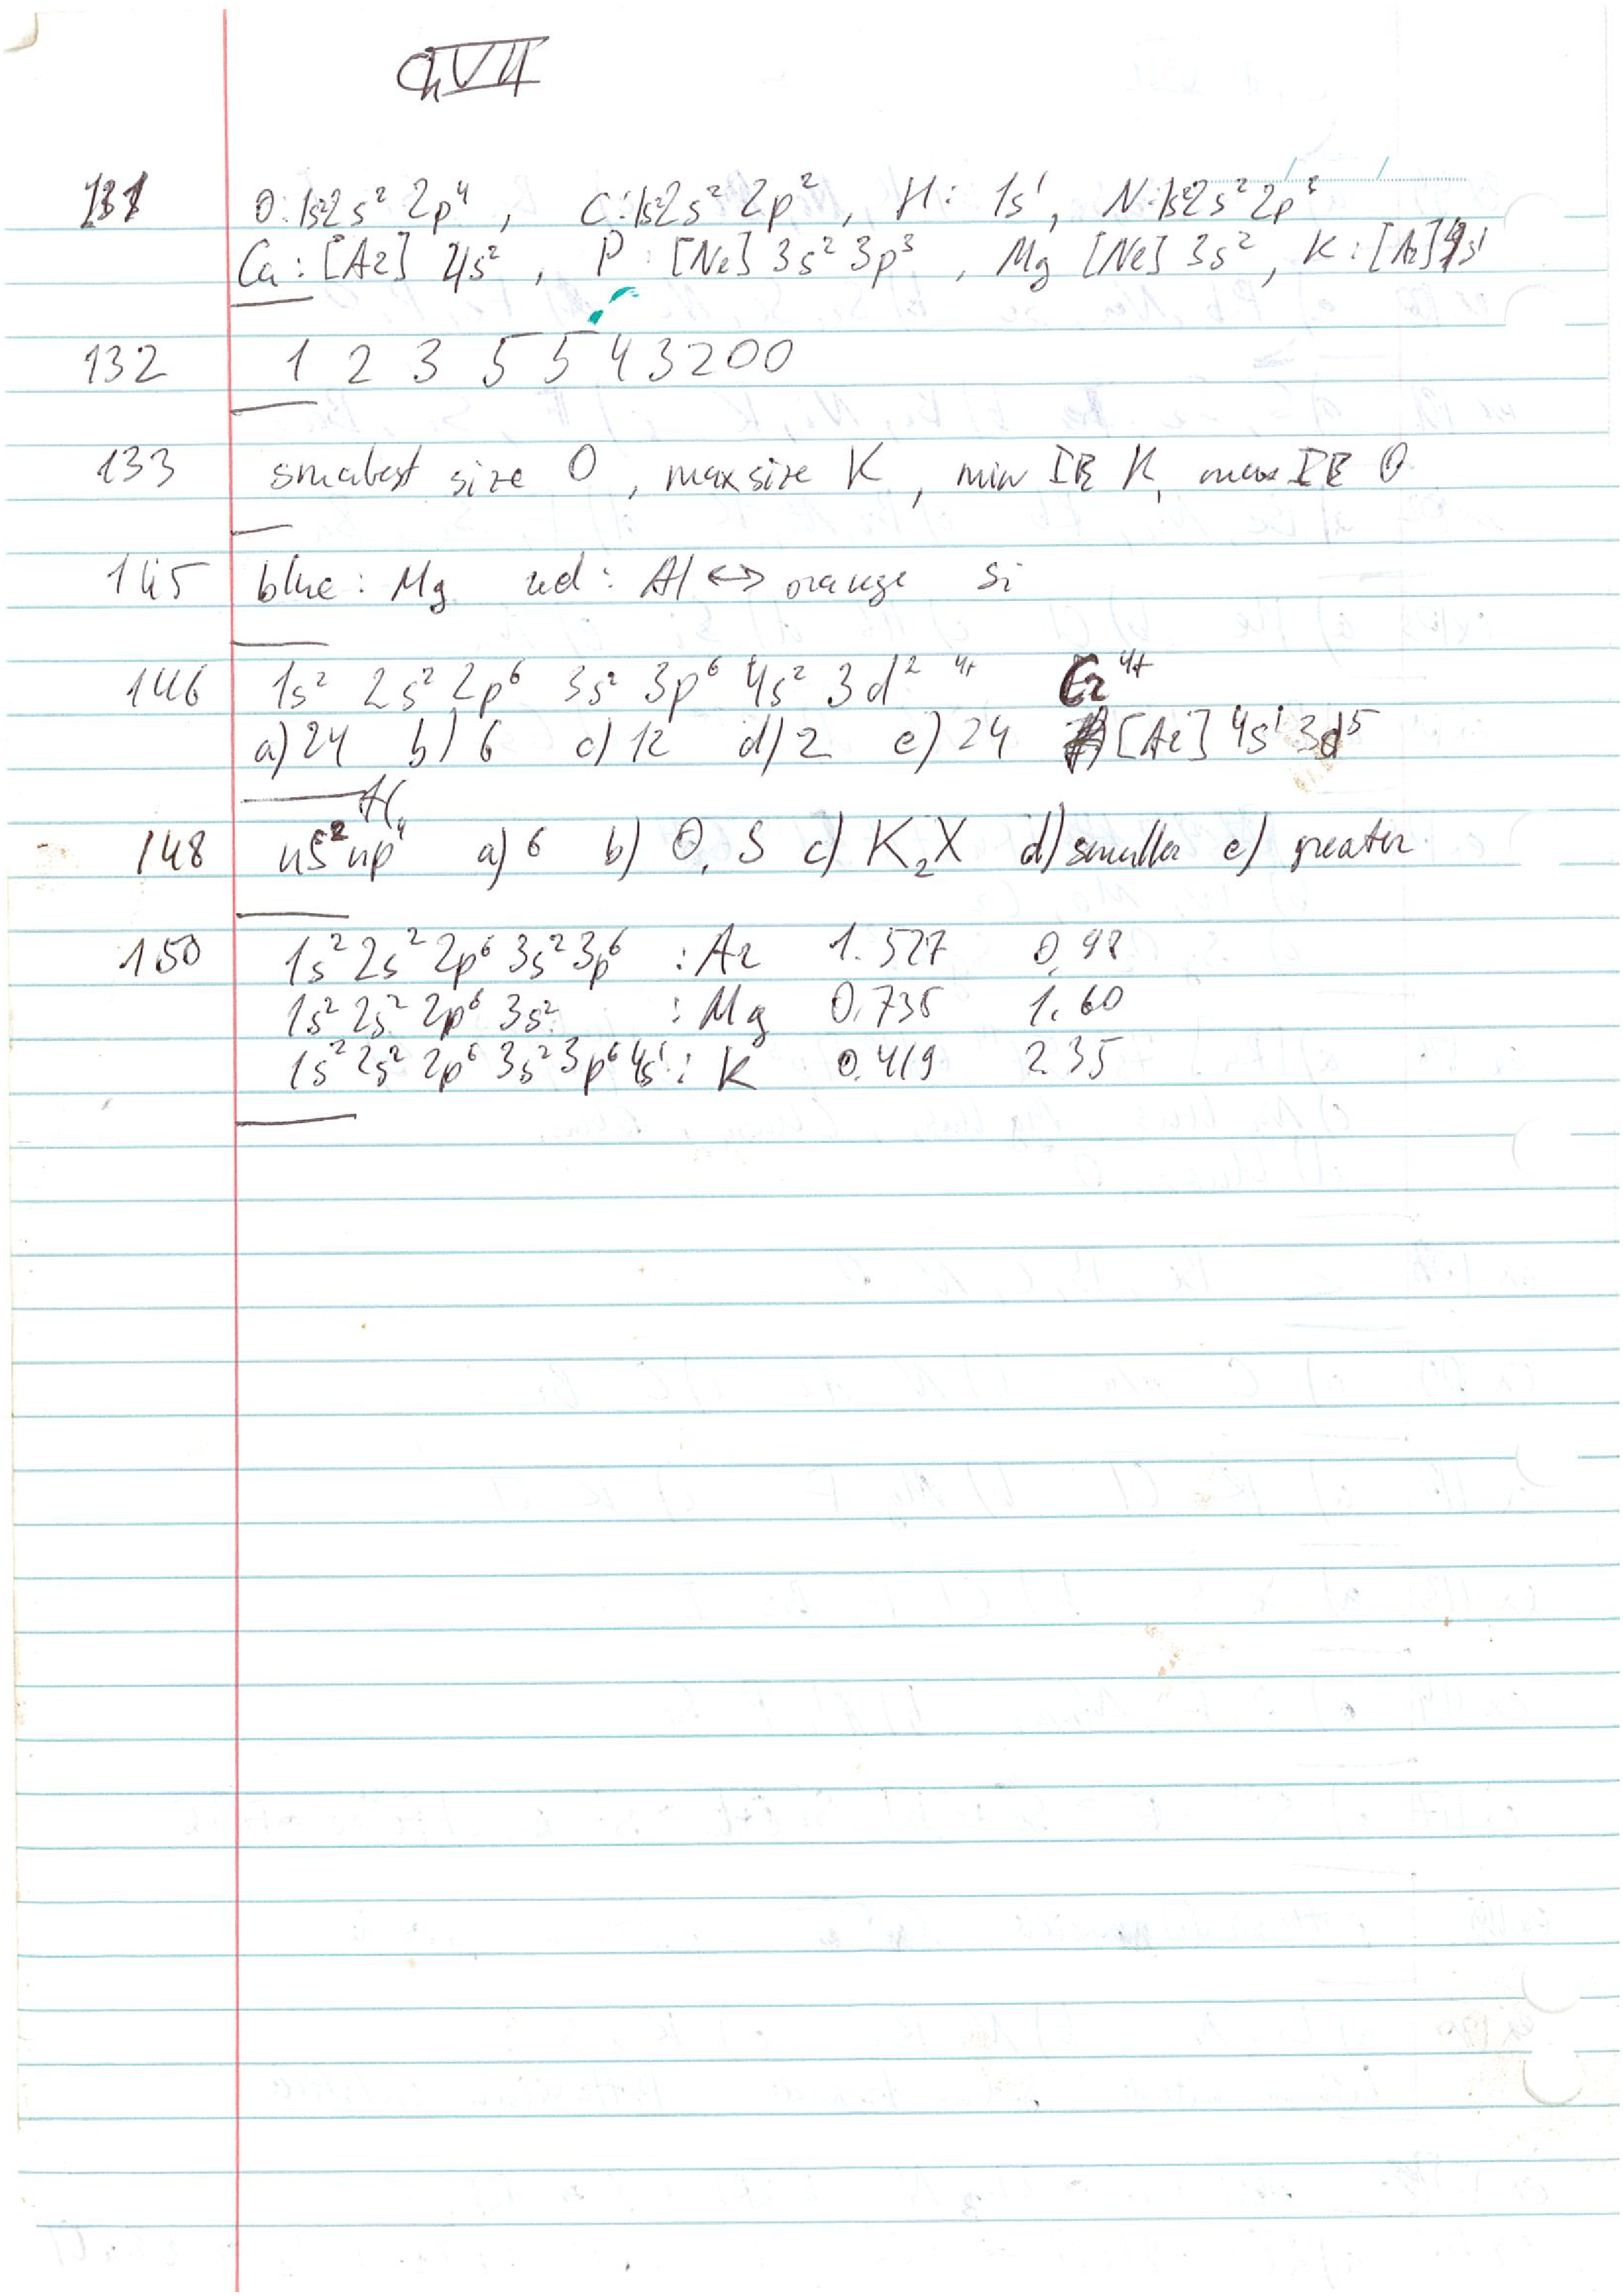 Ch VII
131 O: 1s²2s² 2p⁴, C: 1s²2s² 2p², H: 1s¹, N: 1s²2s²2p³
Ca: [Ar] 4s², P: [Ne] 3s² 3p³, Mg [Ne] 3s², K: [Ar] 4s¹
132 1 2 3 5 5 4 3 2 0 0
133 smalest size O, max size K, min IE K, max IE O
145 blue: Mg red: Al ↔ orange Si
146 1s² 2s² 2p⁶ 3s² 3p⁶ 4s² 3d² ⁴⁺ Cr⁴⁺
a) 24 b) 6 c) 12 d) 2 e) 24 [Ar] 4s¹ 3d⁵
148 ns²np⁴ a) 6 b) O, S c) K₂X d) smaller e) greater
150 1s² 2s² 2p⁶ 3s² 3p⁶ : Ar 1.527 0.98
1s² 2s² 2p⁶ 3s² : Mg 0.735 1.60
1s² 2s² 2p⁶ 3s² 3p⁶ 4s¹ : K 0.419 2.35